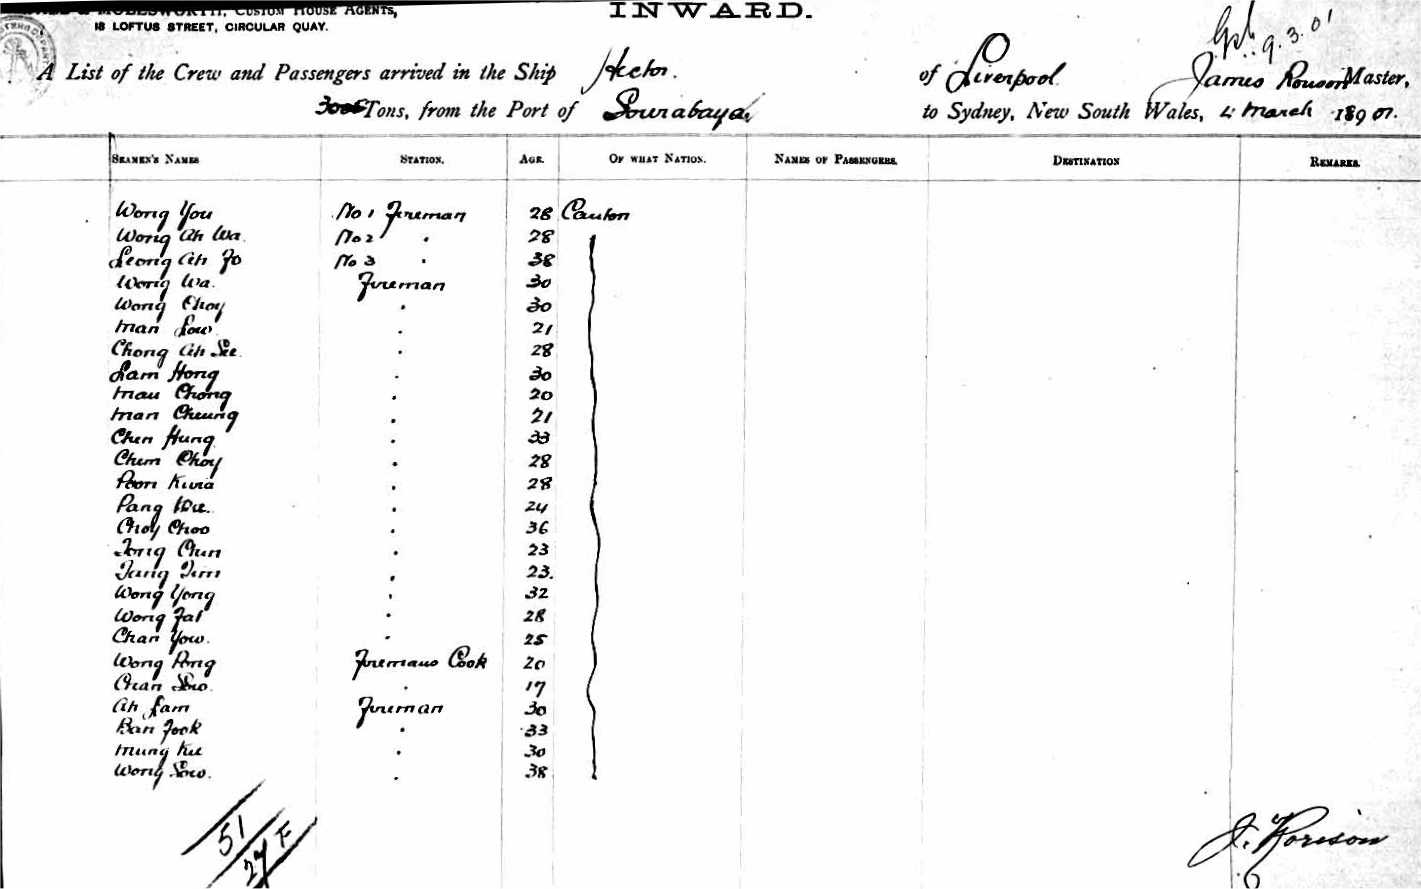 INWARD.
MOLESWORTH, CUSTOM HOUSE AGENTS,
18 LOFTUS STREET, CIRCULAR QUAY.
9.3.01
A List of the Crew and Passengers arrived in the Ship Hector. of Liverpool James Master,
Tons, from the Port of Sourabaya to Sydney, New South Wales, 4 March 1901.
SEAMEN'S NAMES STATION. AGE. OF WHAT NATION. NAMES OF PASSENGERS. DESTINATION REMARKS.
Wong You No 1 Fireman 28 Canton
Wong Ah Wa. No 2 " 28
Leong Ah Fo No 3 " 38
Wong Wa. Fireman 30
Wong Choy " 30
Man Low " 21
Chong Ah See " 28
Lam Hong " 30
Mau Chong " 20
Man Cheung " 21
Chen Hung " 33
Chem Choy " 28
Poon " 28
Pang " 24
Choy Choo " 36
Tong Chun " 23
Tang Tim " 23.
Wong Yong " 32
Wong Fat " 28
Chan Yow. " 25
Wong Pong Firemans Cook 20
Chan Soo. " 17
Ah Lam Fireman 30
Ban Fook " 33
Mung Kee " 30
Wong Soo. " 38
51
27 F